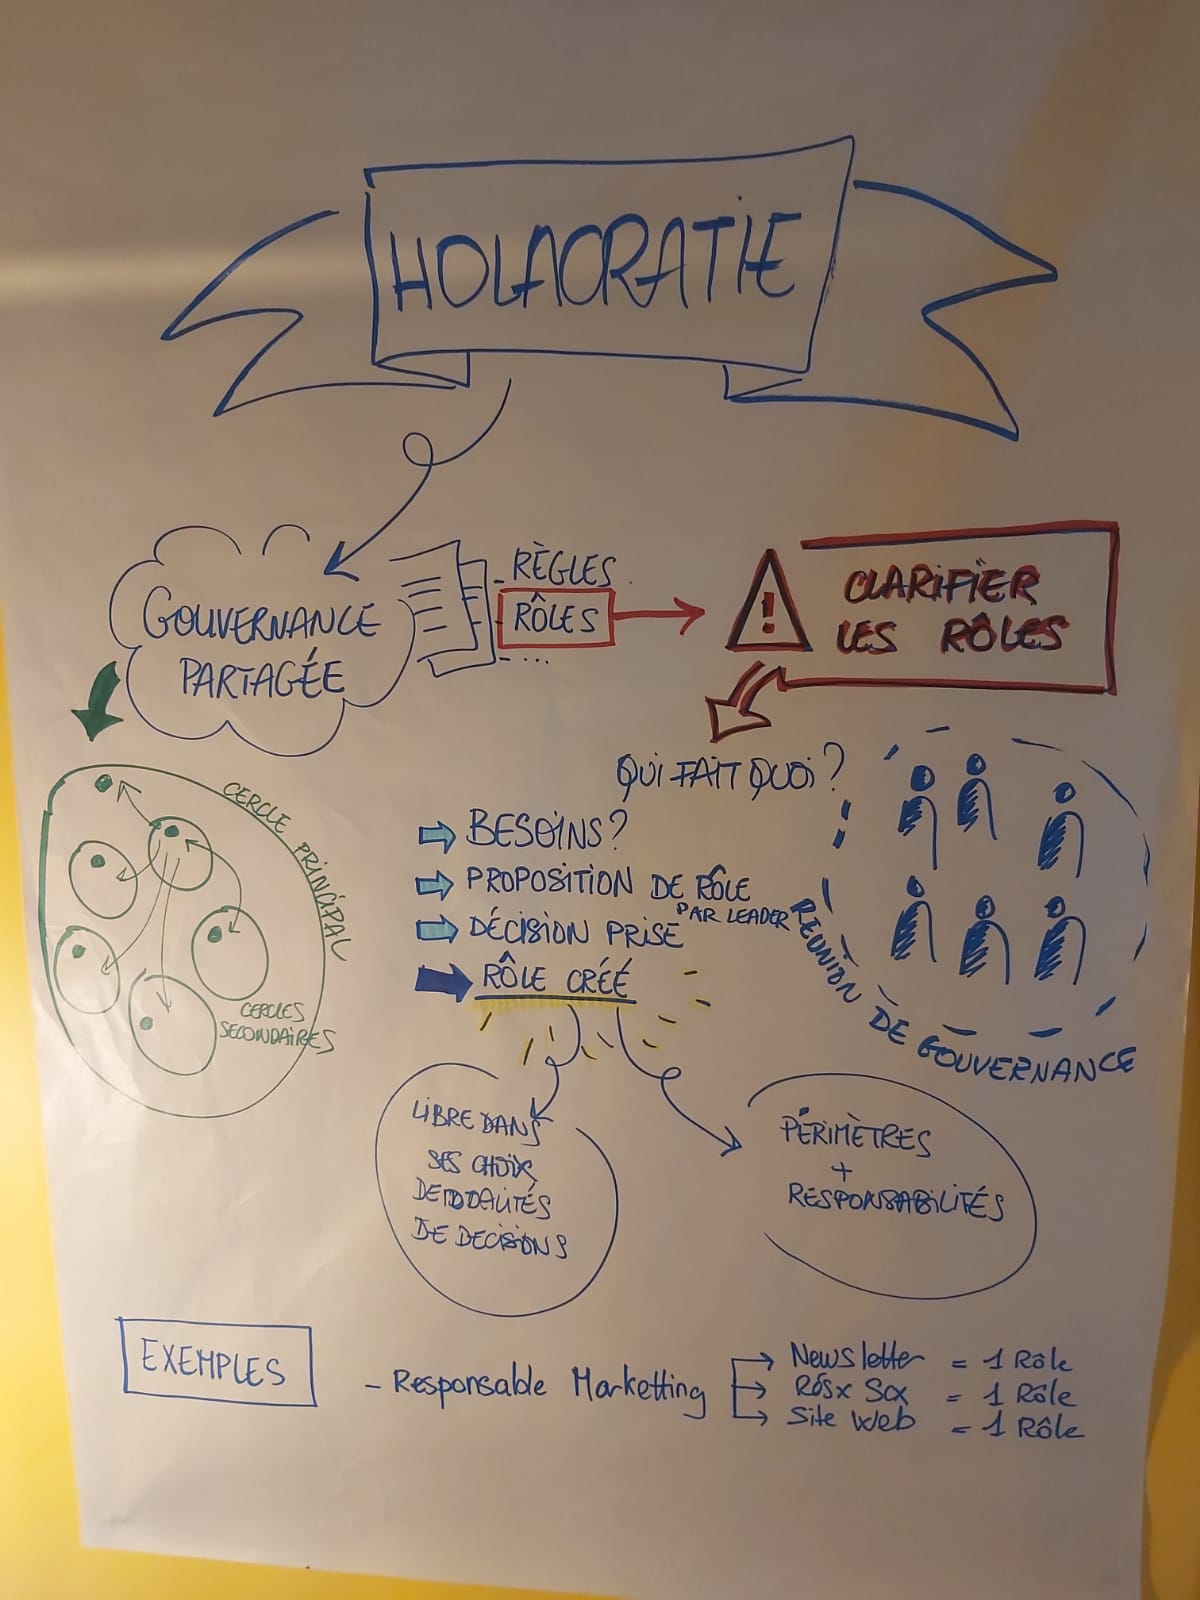 HOLACRATIE
GOUVERNANCE
PARTAGÉE
- RÈGLES
- RÔLES
- ...
CLARIFIER
LES RÔLES
!
QUI FAIT QUOI ?
CERCLE PRINCIPAL
CERCLES
SECONDAIRES
BESOINS ?
PROPOSITION DE RÔLE
PAR LEADER
DÉCISION PRISE
RÔLE CRÉÉ
RÉUNION DE GOUVERNANCE
LIBRE DANS
SES CHOIX
DE DÉCISIONS
PÉRIMÈTRES
+
RESPONSABILITÉS
EXEMPLES
- Responsable Marketting
Newsletter = 1 Rôle
RÉSX SCX = 1 Rôle
Site Web = 1 Rôle